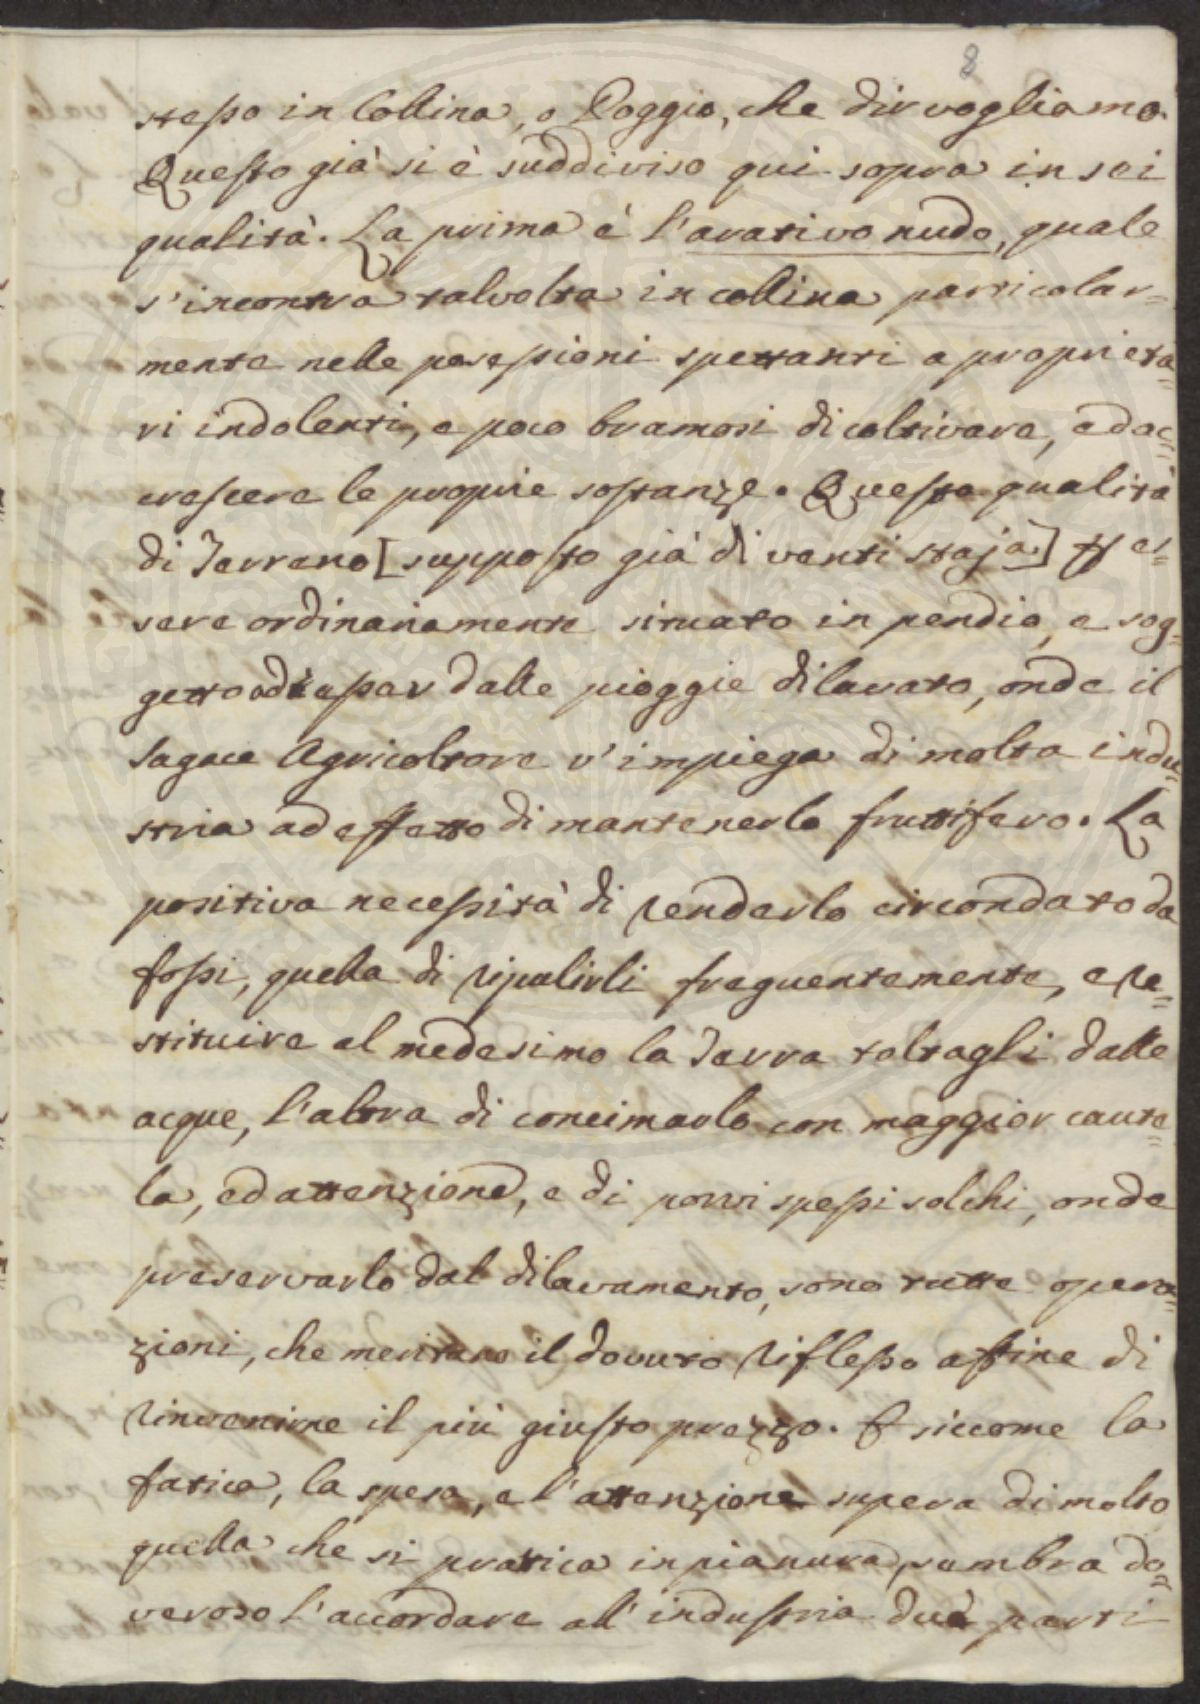 8
stesso in Collina, o Poggio, che dir vogliamo.
Questo già si è suddiviso qui sopra in sei
qualità. La prima è l'arativo nudo, quale
s'incontra talvolta in collina particolar=
mente nelle possessioni spettanti a proprieta=
ri indolenti, e poco bramosi di coltivare, ed ac=
crescere le proprie sostanze. Questa qualità
di Terreno [supposto già di venti staja] p es=
sere ordinariamente situato in pendio, e sog=
getto ad esser dalle pioggie dilavato, onde il
sagace Agricoltore v'impiega di molta indu=
stria ad effetto di mantenerlo fruttifero. La
positiva necessità di renderlo circondato da
fossi, quella di ripulirli frequentemente, e re=
stituire al medesimo la Terra toltagli dalle
acque, l'altra di concimarlo con maggior caute=
la, ed attenzione, e di porvi spessi solchi, onde
preservarlo dal dilavamento, sono tutte opera=
zioni, che meritano il dovuto riflesso affine di
rinvenirne il più giusto prezzo. E siccome la
fatica, la spesa, e l'attenzione supera di molto
quella che si pratica in pianura, sembra do=
veroso l'accordare all'industria due parti